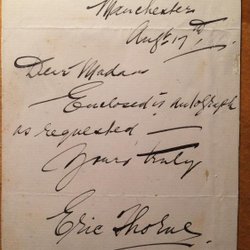 Manchester
Aug: 17th
Dear Madam
Enclosed is autograph
as requested —
Yours truly
Eric Thorne